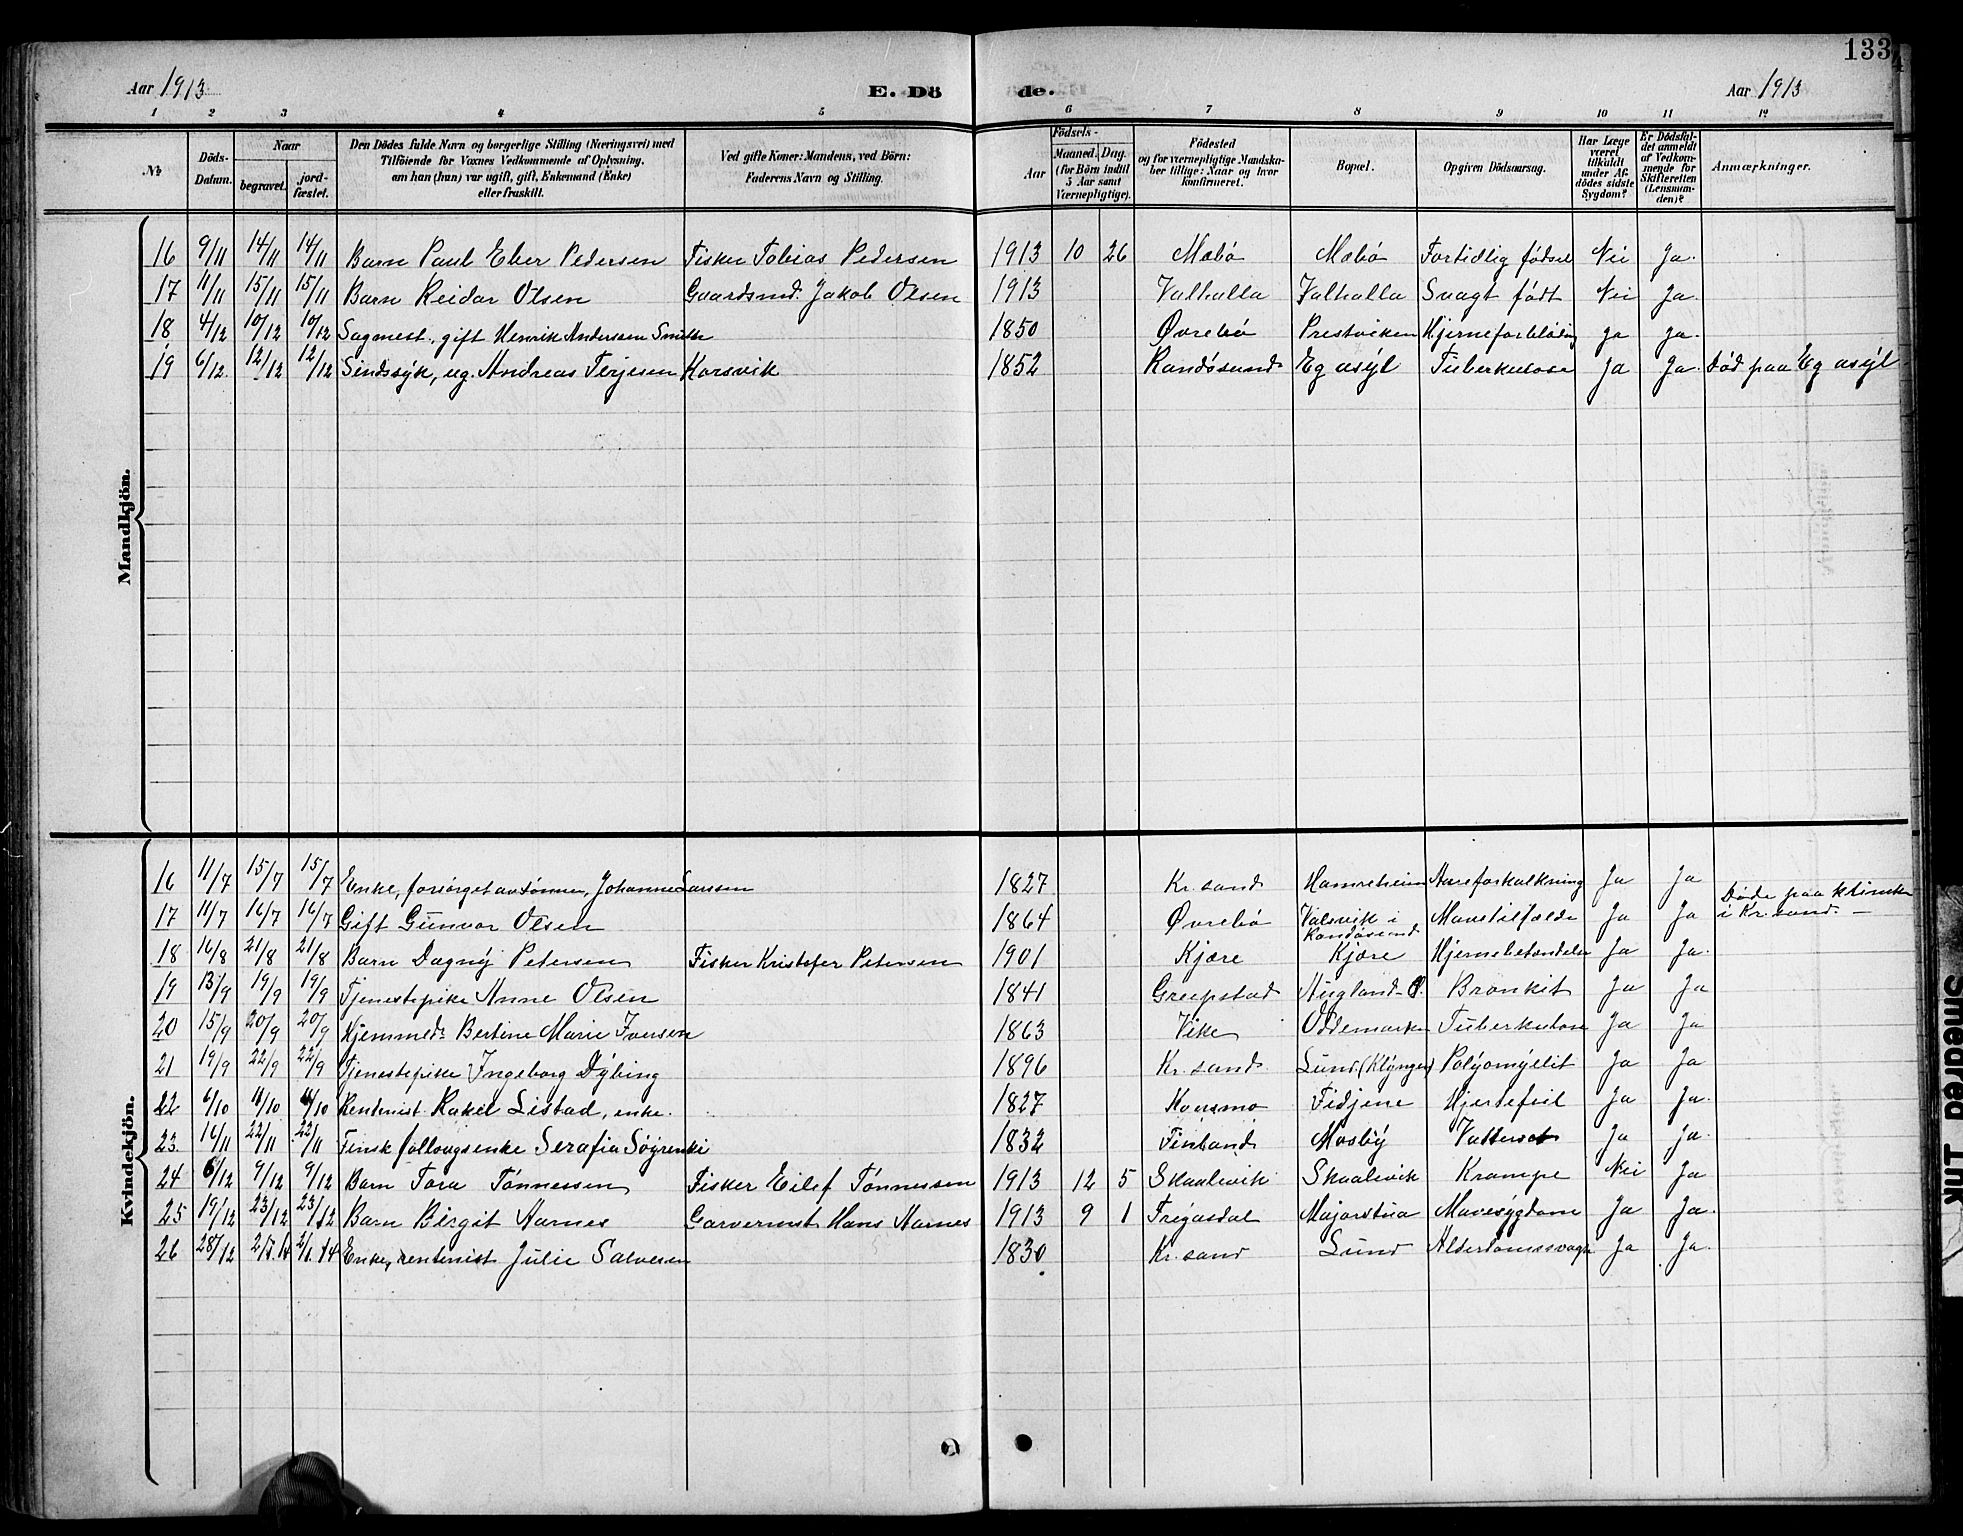 133
Aar 1913 E. Dö de. Aar 1913
1 2 3 4 5 6 7 8 9 10 11 12
No Döds-Datum. Naar begravet. jordfæstet. Den Dödes fulde Navn og borgerlige Stilling (Næringsvei) med Tilföiende for Voxnes Vedkommende af Oplysning, om han (hun) var ugift, gift, Enkemand (Enke) eller fraskilt. Ved gifte Koner: Mandens, ved Börn: Faderens Navn og Stilling. Födsels- Aar Maaned. Dag. (for Börn indtil 5 Aar samt Værnepligtige). Födested og for værnepligtige Mandskaber tillige: Naar og hvor konfirmeret. Bopæl. Opgiven Dödsaarsag. Har Læge været tilkaldt under Afdödes sidste Sygdom? Er Dödsfaldet anmeldt af Vedkommende for Skifteretten (Lensmanden)? Anmærkninger.
Mandkjön.
16 9/11 14/11 14/11 Barn Paul Eber Pedersen Fisker Tobias Pedersen 1913 10 26 Mæbø Mæbø Fortidlig fødsel Nei Ja.
17 11/11 15/11 15/11 Barn Reidar Olsen Gaardsmd. Jakob Olsen 1913 Valhalla Valhalla Svagt født Nei Ja.
18 4/12 10/12 10/12 Sagmest., gift Henrik Anderssen 1850 Øvrebø Prestviken Hjerneforblødning ja ja.
19 6/12. 12/12 12/12 Sindssyk, ug. Andreas Terjesen Korsvik 1852 Randøsund Eg asyl Tuberkulose Ja Ja. Død paa Eg asyl
Kvindekjön.
16 11/7 15/7 15/7 Enke, forsørget av sønner, Johanne Larssen 1827 Kr. sand Hamreheien Aareforkalkning Ja Ja
17 11/7 16/7 16/7 Gift Gunvor Olsen 1864 Øvrebø Valsvik i Randøsund Mavetilfælde Ja Ja Døde paa klinik i Kr. sand. —
18 16/8 21/8 21/8 Barn Dagny Petersen Fisker Kristofer Petersen 1901 Kjære Kjære Hjernebetændelse Ja Ja.
19 13/9 19/9 19/9 Tjenestepike Anne Olsen 1841 Greipstad Augland Bronkit Ja Ja
20 15/9 20/9 20/9 Hjemmed. Bertine Marie Iversen 1863 Vike Oddemarken Tuberkulose Ja Ja
21 19/9 22/9 22/9 Tjenestepike Ingeborg Dybing 1896 Kr. sand Lund Polyomyllit Ja Ja
22 6/10 11/10 Rentenist Rakel Listad, enke. 1827 Tidjene Hjertefeil Ja Ja.
23. 16/11 22/11 22/11 Finsk Serafia 1832 Finland Mosby Vattersot Ja Ja.
24 6/12 9/12 9/12 Barn Tora Tønnessen Fisker Eilef Tønnessen 1913 12 5 Skaalevik Skaalevik Krampe Nei Ja
25 19/12 23/12 23/12 Barn Birgit Aarnes Garvermst Hans Aarnes 1913 9 1 Tregasdal Majorstua Mavesygdom Ja Ja.
26 28/12 2/1.14 2/1.14 Enke, rentenist Julie Salvesen 1830 Kr. sand Lund Alderdomssvagh. Ja Ja.
Smeared Ink